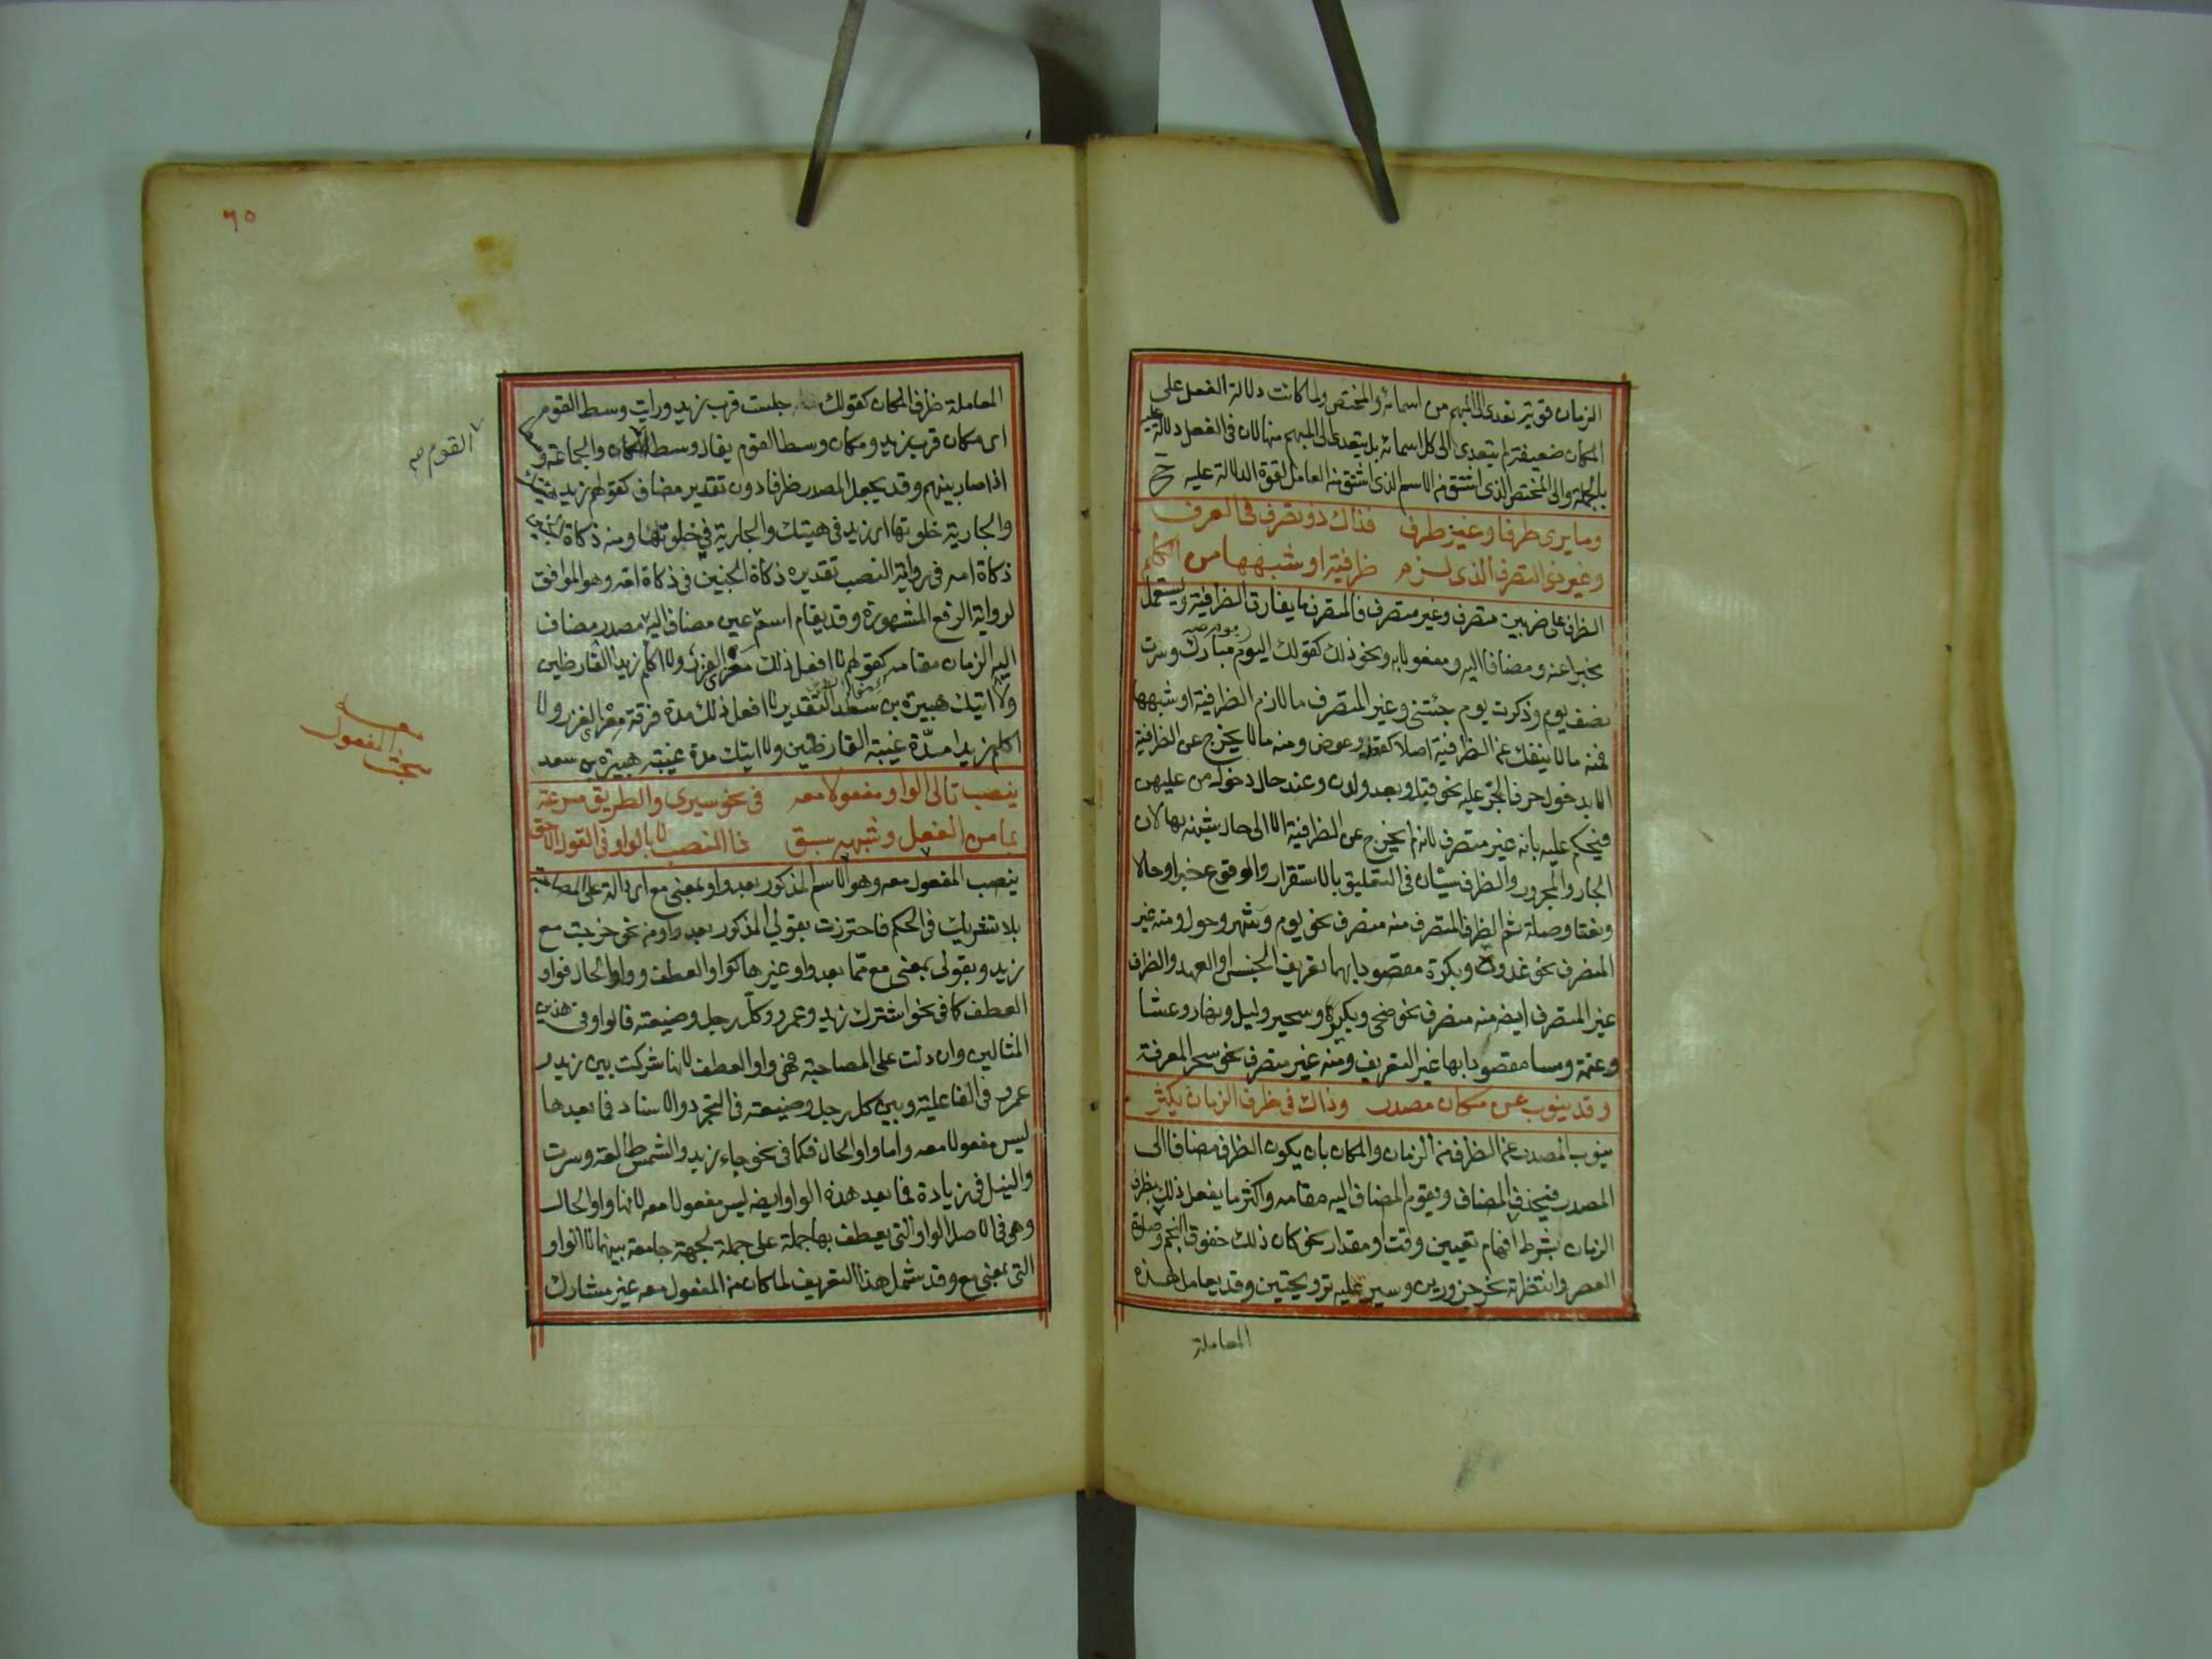 الزمان قوية تعدى الى المبهم من اسمائه والمختص ولما كانت دلالة الفعل على
المكان ضعيفة لم يتعدى الى كل اسمائه بل يتعدى الى المبهم منها لان فى الفعل دلالة عليه
بالجملة والى المختص الذى اشتق منه الاسم الذى اشتق منه العامل لقوة الدلالة عليه ح
وما يرى ظرفا وغير ظرف فذاك ذو تصرف فى العرف
وغير ذى التصرف الذى لزم ظرفية او شبهها من الكلم
الظرف على ضربين متصرف وغير متصرف فالمتصرف ما يفارق الظرفية ويستعمل
مخبرا عنه ومضافا اليه ومفعولا به ونحو ذلك كقولك اليوم مبارك وسرت
نصف يوم وذكرت يوم جئتنى وغير المتصرف ما لازم الظرفية او شبهها
فمنه ما لا ينفك عن الظرفية اصلا كقط وعوض ومنه ما لا يخرج عن الظرفية
الا بدخول حرف الجر عليه نحو قبل وبعد ولدن وعند حال دخول من عليهن
فيحكم عليه بانه غير متصرف لانه لم يخرج عن الظرفية الا الى حال شبيهة بها لان
الجار والمجرور والظرف سيان فى التعليق بالاستقرار والوقوع خبرا وحالا
ونعتا وصلة ثم الظرف المتصرف منه منصرف نحو يوم وشهر وحول ومنه غير
المنصرف نحو غدوة وبكرة مقصودا بهما تعريف الجنس او العهد والظرف
غير المتصرف ايضا منه منصرف نحو ضحى وبكرة وسحير وليل ونهار وعشا
وعتمة ومسا مقصودا بها غير التعريف ومنه غير منصرف نحو سحر المعرفة
وقد ينوب عن مكان مصدر وذاك فى ظرف الزمان يكثر
ينوب المصدر عن الظرف من الزمان والمكان بان يكون الظرف مضافا الى
المصدر فيحذف المضاف ويقوم المضاف اليه مقامه واكثر ما يفعل ذلك بظرف
الزمان بشرط افهام تعيين وقت او مقدار نحو كان ذلك خفوق النجم وصلوة
العصر وانتظرته نحر جزورين وسير عليه ترويحتين وقد يعامل هذه
المعاملة
٦٥
المعاملة ظرف المكان كقولك جلست قرب زيد ورايت وسط القوم
اى مكان قرب زيد ومكان وسط القوم يقال وسط المكان والجماعة
القوم صح
اذا صار بينهم وقد يجعل المصدر ظرفا دون تقدير مضاف كقولهم زيد هيئتك
والجارية خلوتها اى زيد فى هيئتك والجارية فى خلوتها ومنه ذكاة الجنين
ذكاة امه فى رواية النصب تقديره ذكاة الجنين فى ذكاة امه وهو الموافق
لرواية الرفع المشهورة وقد يقام اسم عين مضاف اليه مصدر مضاف
اليه الزمان مقامه كقولهم لا افعل ذلك معزى الفزر ولا اكلم زيدا القارظين
ولا اتيك هبيرة بن سعد التقدير لا افعل ذلك مدة فرقة معزى الفزر ولا
اكلم زيدا مدة غيبة القارظين ولا اتيك مدة غيبة هبيرة بن سعد
المفعول
ينصب تالى الواو مفعولا معه فى نحو سيرى والطريق مسرعة
بما من الفعل وشبهه سبق ذا النصب لا بالواو فى القول الاحق
ينصب المفعول معه وهو الاسم المذكور بعد واو بمعنى مع اى دالة على المصاحبة
بلا تشريك فى الحكم فاحترزت بقولى المذكور بعد واو من نحو خرجت مع
زيد وبقولى بمعنى مع مما بعد واو غيرها كواو العطف وواو الحال فواو
العطف كما فى نحو اشترك زيد وعمرو وكل رجل وضيعته فالواو فى هذين
المثالين وان دلت على المصاحبة فهى واو العطف لانها شركت بين زيد و
عمرو فى الفاعلية وبين كل رجل وضيعته فى التجرد والاسناد فما بعدها
ليس مفعولا معه واما واو الحال فكما فى نحو جاء زيد والشمس طالعة وسرت
والنيل فى زيادة فما بعد هذه الواو ايضا ليس مفعولا معه لانها واو الحال
وهى فى الاصل الواو التى يعطف بها جملة على جملة لجهة جامعة بينهما لا الواو
التى بمعنى مع وقد شمل هذا التعريف لما كان من المفعول معه غير مشارك